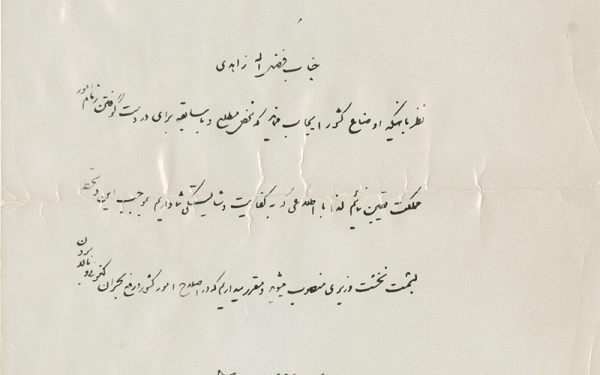 جناب فضل اله زاهدی
نظر باینکه اوضاع کشور ایجاب مینماید که شخص مطلع و با سابقه برای در دست گرفتن زمام امور
مملکت تعیین نمائیم لذا با اطلاعی که به کفایت و شایستگی شما داریم بموجب این دستخط
بسمت نخست وزیری منصوب میشوید و مقرر میداریم که در اصلاح امور کشور و رفع بحران کنونی و بالا بردن